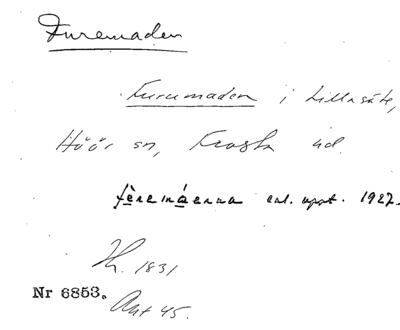 Furemaden
Furumaden i Lillasäte,
Höör sn, Frosta hd.
fèremáenna enl. uppt. 1927.
Jb. 1831
Nr 6853.
Akt 45.